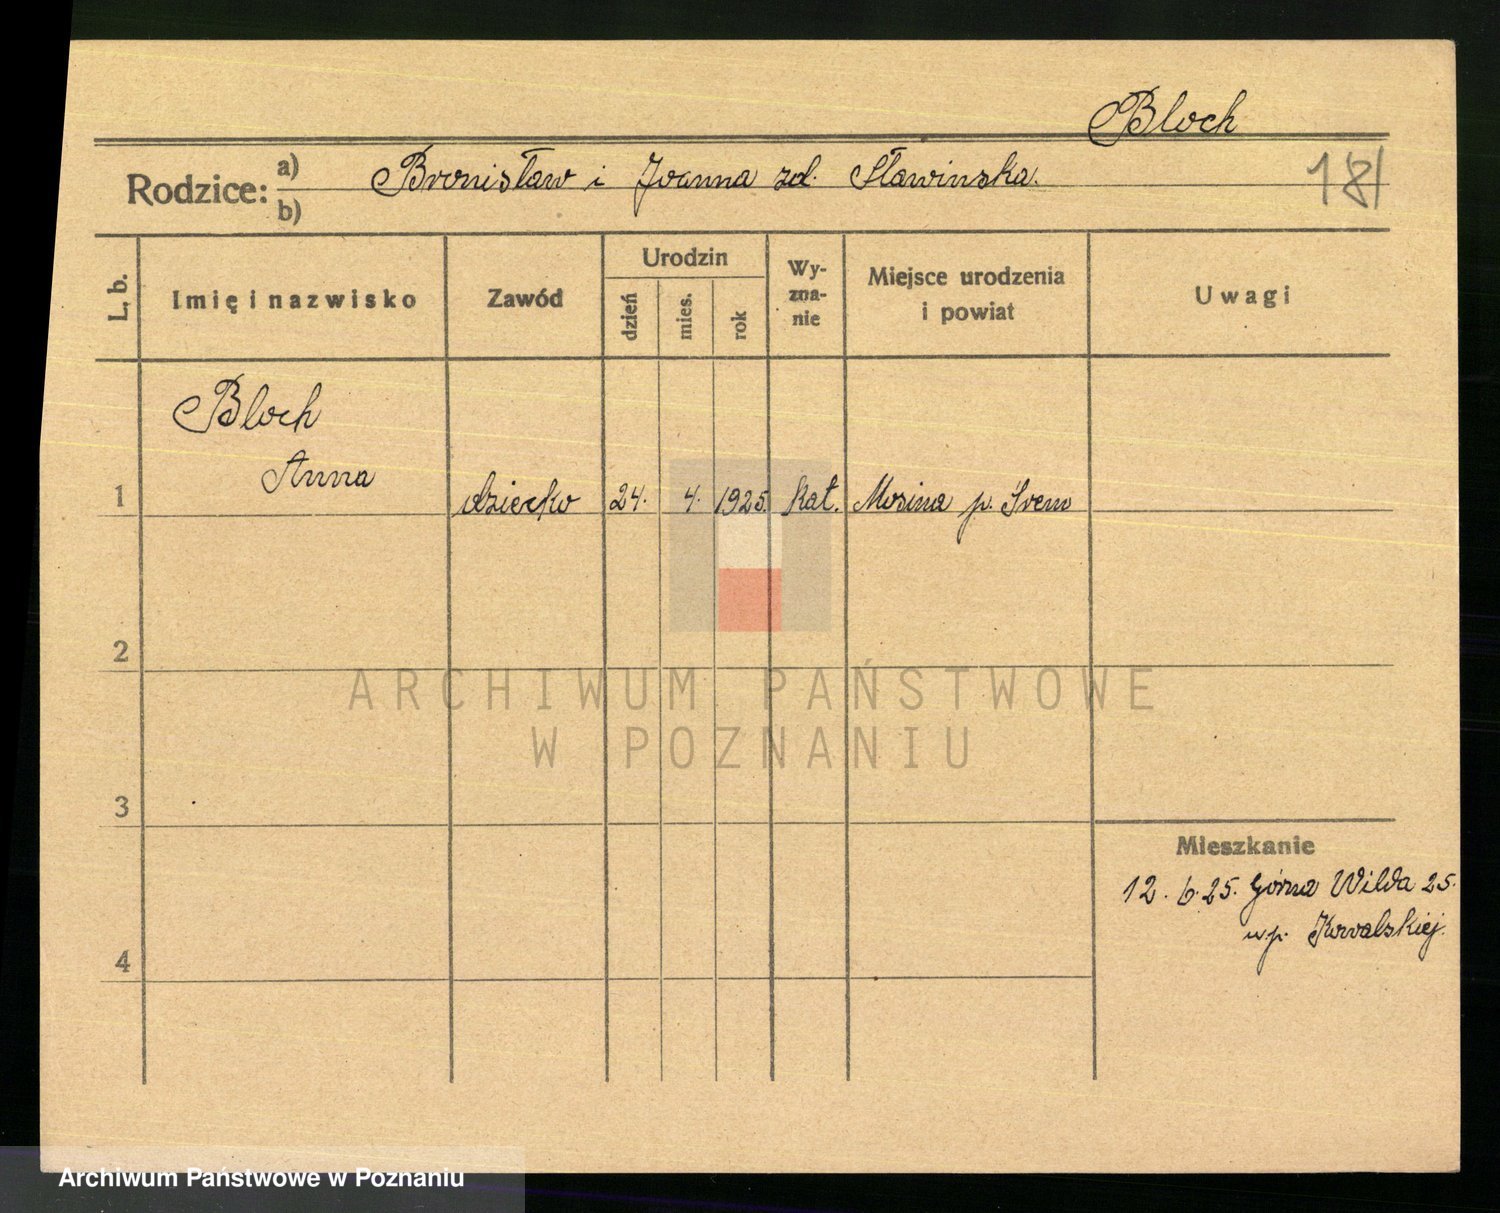 Bloch
Rodzice: a) Bronisław i Joanna zd. Sławinska.
b)
181
L. b.
Imię i nazwisko
Zawód
Urodzin
dzień
mies.
rok
Wy-
zna-
nie
Miejsce urodzenia
i powiat
Uwagi
Bloch
Anna
1 dziecko 24. 4. 1925. kat. Mosina p. Śrem
2
ARCHIWUM PAŃSTWOWE
W POZNANIU
3
Mieszkanie
12. 6. 25. Górna Wilda 25.
u p. Kowalskiej.
4
Archiwum Państwowe w Poznaniu